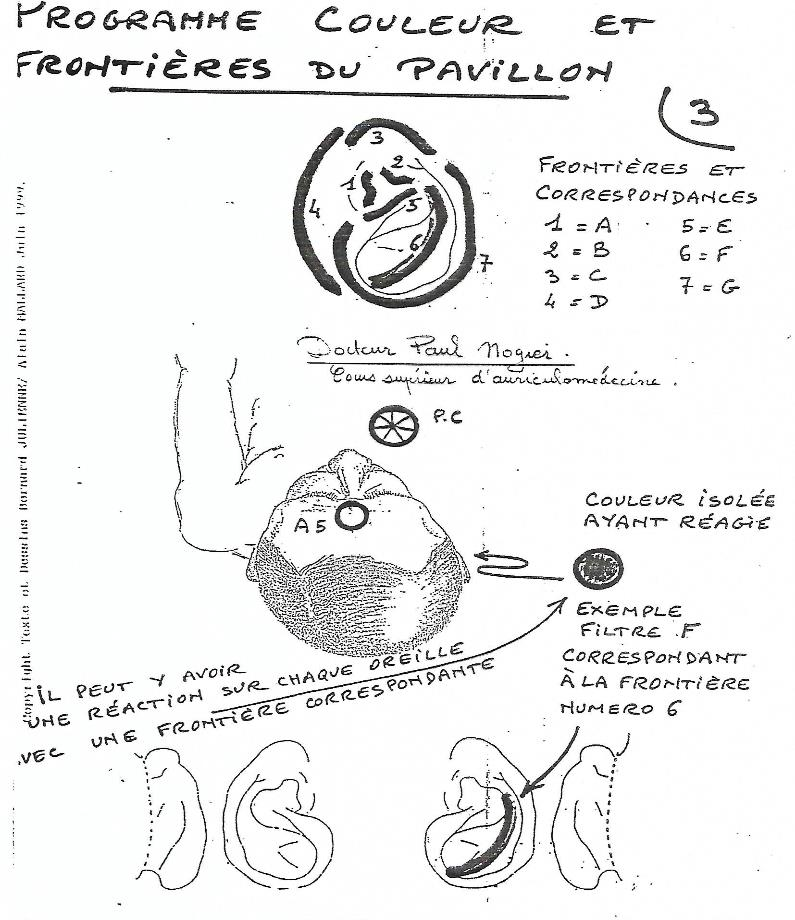 PROGRAMME COULEUR ET
FRONTIÈRES DU PAVILLON
3
3
2
1
5
4
6
7
FRONTIÈRES ET
CORRESPONDANCES
1 = A 5 = E
2 = B 6 = F
3 = C 7 = G
4 = D
Docteur Paul Nogier.
Cours supérieur d'auriculomédecine.
P.C
A5
COULEUR ISOLÉE
AYANT RÉAGIE
EXEMPLE
FILTRE F
CORRESPONDANT
À LA FRONTIÈRE
NUMERO 6
IL PEUT Y AVOIR
UNE RÉACTION SUR CHAQUE OREILLE
AVEC UNE FRONTIÈRE CORRESPONDANTE
Copyright Texte et Dessins Bernard JULIENNE/ Alain MALLARD Juin